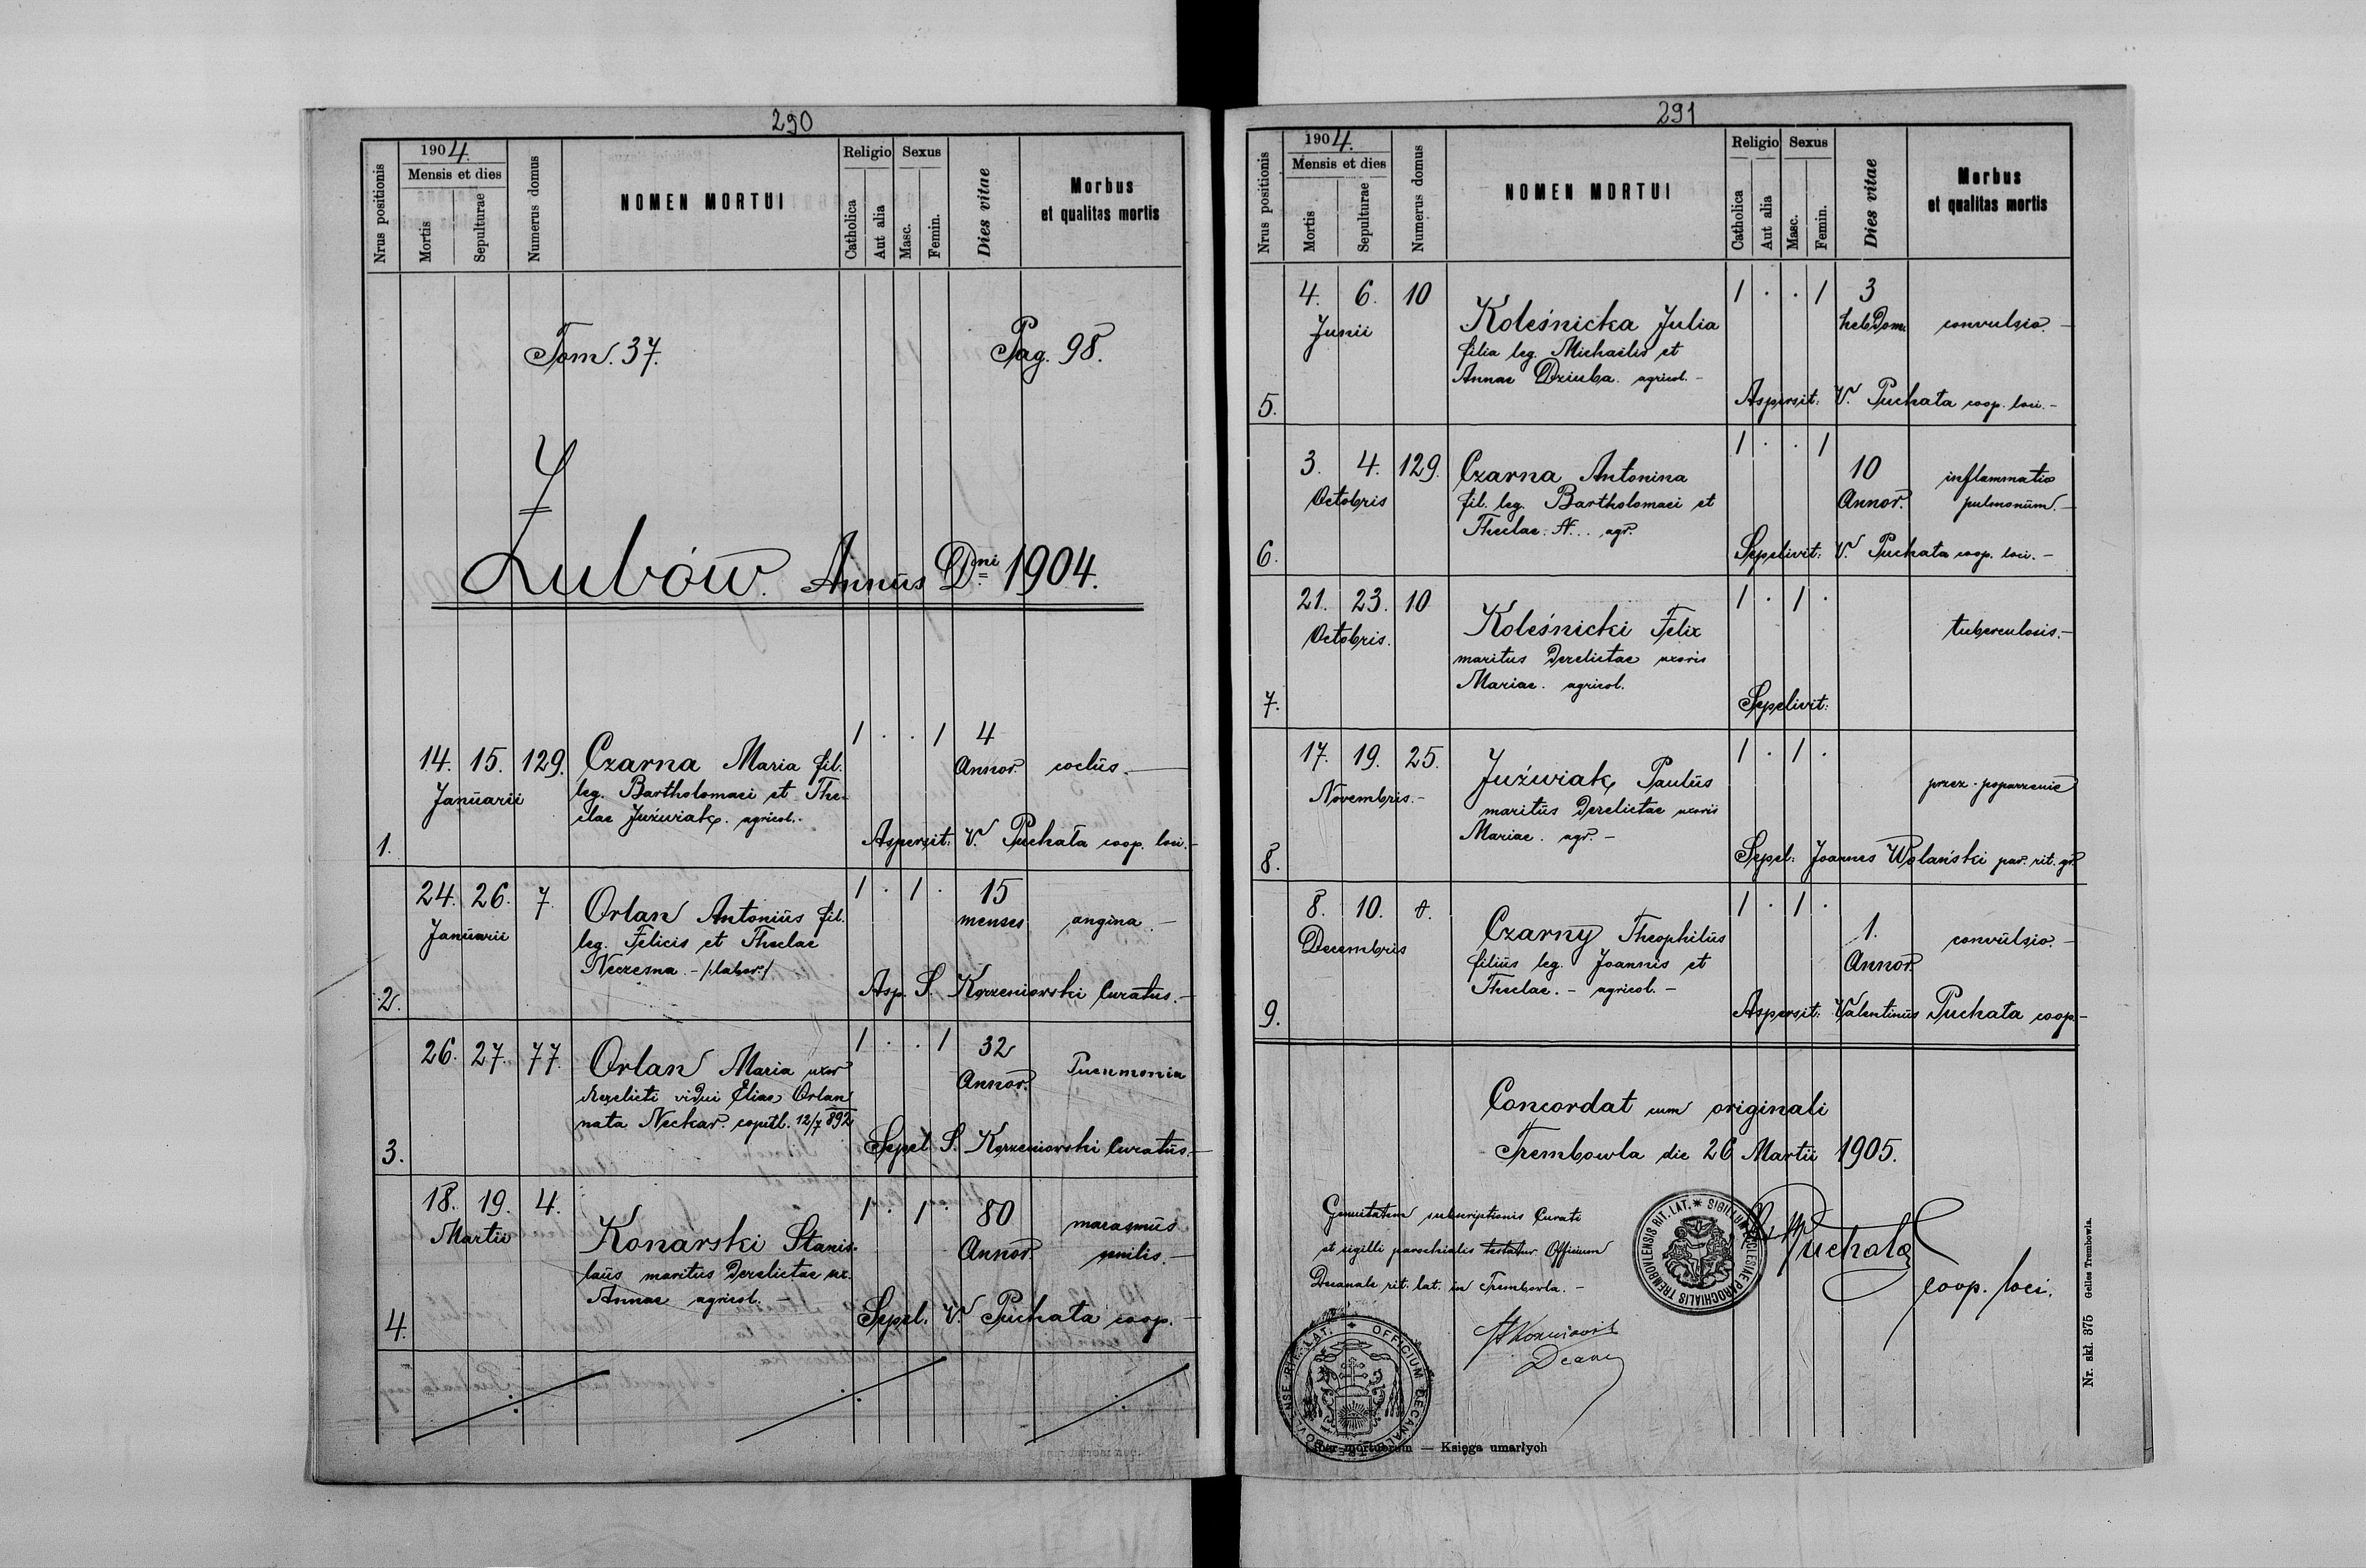 290
1904.
Nrus positionis
Mensis et dies
Mortis
Sepulturae
Numerus domus
NOMEN MORTUI
Religio
Catholica
Aut alia
Sexus
Masc.
Femin.
Dies vitae
Morbus
et qualitas mortis
Tom. 37. Pag. 98.
Łubów. Annus Dni 1904.
1. 14. 15. 129. Czarna Maria fil. 1 . . 1 4
Januarii leg. Bartholomaei et The- Annor.
clae Juźwiak. agricol.
Aspersit: V. Puchała coop. loci.-
2. 24. 26. 7. Orlan Antonius fil. 1 . 1 . 15
Januarii leg. Felicis et Theclae menses angina.-
Neczesna - /:labor:/
Asp. S. Korzeniowski Curatus.-
3. 26. 27. 77. Orlan Maria uxor 1 . . 1 32
derelicti vidui Eliae Orlan Annor.
nata Neckar. copul. 12/7 892
Sepel. S. Korzeniowski Curatus.-
4. 18. 19. 4. Konarski Stanis- 1 . 1 . 80 marasmus
Martii laus maritus derelictae ux. Annor. senilis.-
Annae agricol.-
Sepel. V. Puchała coop.-
291
1904.
Nrus positionis
Mensis et dies
Mortis
Sepulturae
Numerus domus
NOMEN MORTUI
Religio
Catholica
Aut alia
Sexus
Masc.
Femin.
Dies vitae
Morbus
et qualitas mortis
5. 4. 6. 10 Koleśnicka Julia 1 . . 1 3
Junii filia leg. Michaëlis et hebdom. convulsio.-
Annae Dziuba. agricol.-
Aspersit: V. Puchała coop. loci.-
6. 3. 4. 129. Czarna Antonina 1 . . 1 10 inflammatio
Octobris fil. leg. Bartholomaei et Annor. pulmonum.-
Theclae. N... agr.
Sepelivit: V. Puchała coop. loci.-
7. 21. 23. 10 Koleśnicki Felix 1 . 1 . tuberculosis.-
Octobris. maritus derelictae uxoris
Mariae. agricol.
Sepelivit:
8. 17. 19. 25. Juźwiak Paulus 1 . 1 . przez poparzenie
Novembris.- maritus derelictae uxoris
Mariae. agr.-
Sepel: Joannes Wolański par. rit. gr.
9. 8. 10. Czarny Theophilus 1 . 1 . 1. convulsio.-
Decembris filius leg. Joannis et Annor.
Theclae.- agricol.-
Aspersit: Valentinus Puchała coop.-
Concordat cum originali
Trembowla die 26 Martii 1905.
Genuitatem subscriptionis Curati
et sigilli parochialis testatur Officium
Decanale rit. lat. in Trembowla.-
SIGILLUM ECCLESIAE PAROCHIALIS TREMBOVLENSIS RIT. LAT.
Puchała
coop. loci.
Decan
OFFICIUM DECANALE TREMBOVLENSE RIT. LAT.
Liber mortuorum — Księga umarłych
Nr. skł. 375 Gelles Trembowla.